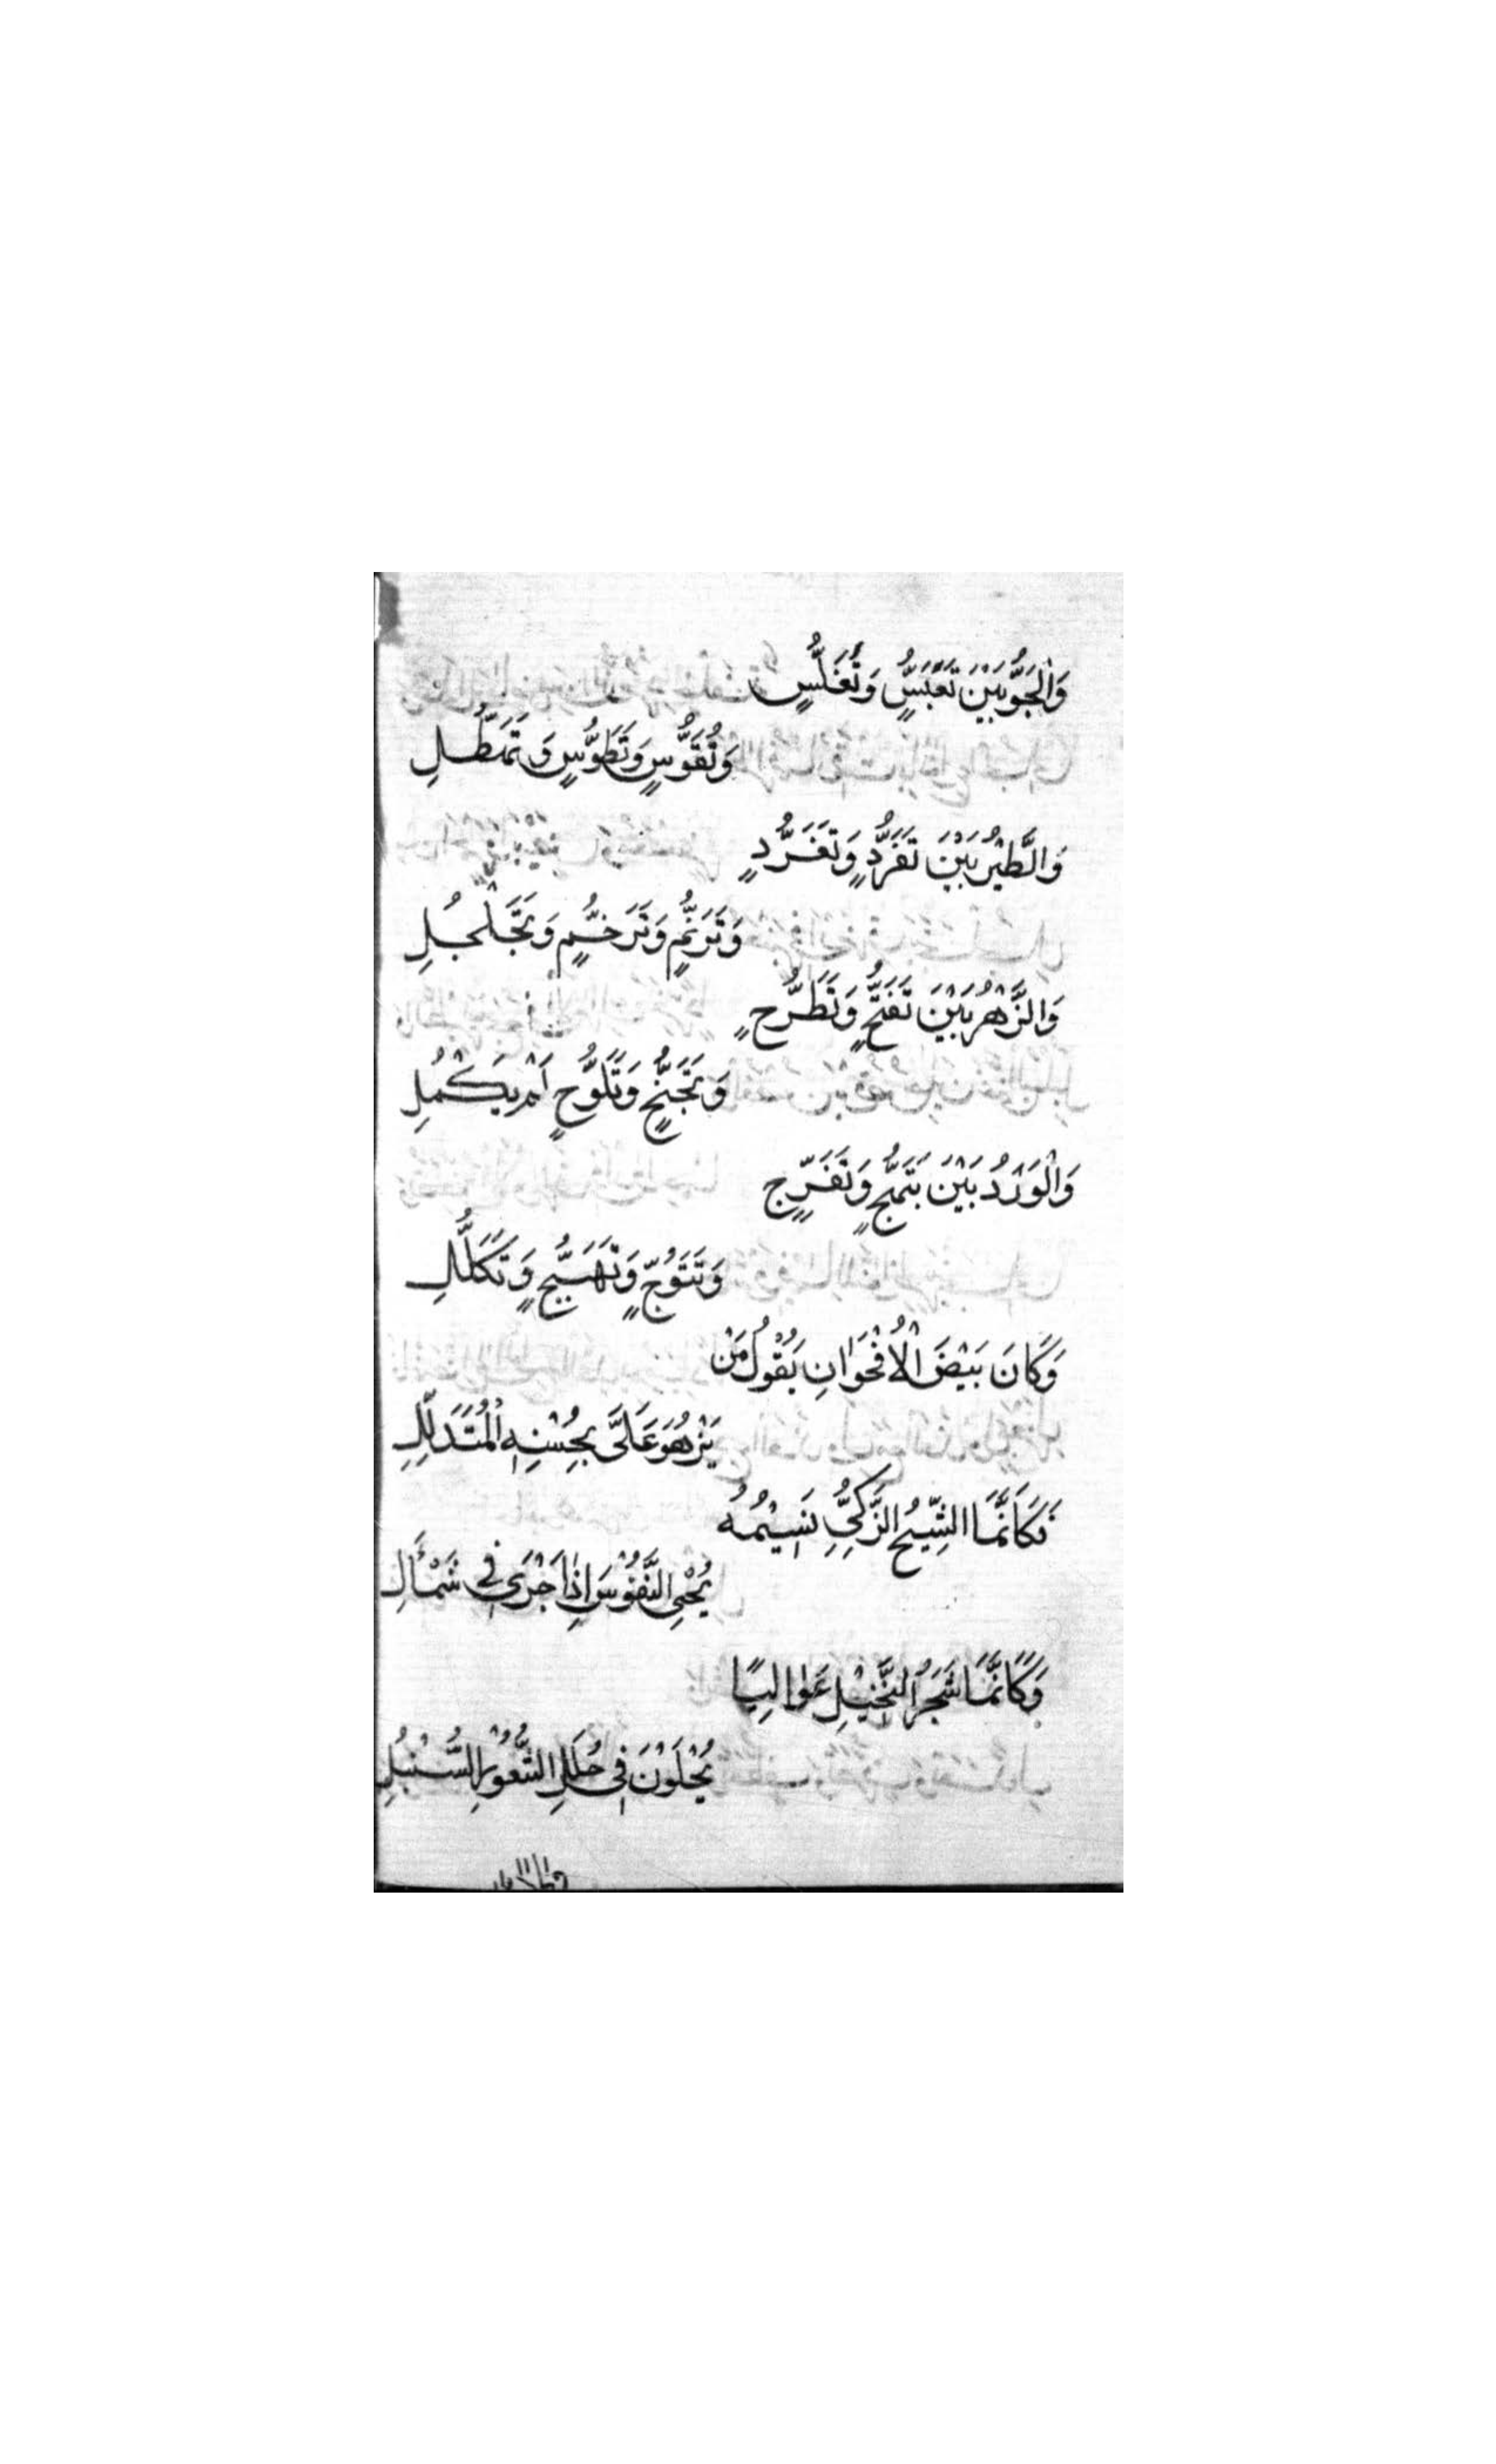 وَالْجَوُّ بَيْنَ تَعَبُّسٍ وَتَغَلُّسٍ
وَتَقَوُّسٍ وَتَطَوُّسٍ وَتَمَطُّلِ
وَالطَّيْرُ بَيْنَ تَفَرُّدٍ وَتَغَرُّدٍ
وَتَرَنُّمٍ وَتَرَخُّمٍ وَتَجَلْجُلِ
وَالزَّهْرُ بَيْنَ تَفَتُّحٍ وَتَطَرُّحٍ
وَتَجَنُّحٍ وَتَلَوُّحٍ لَمْ يَكْمُلِ
وَالْوَرْدُ بَيْنَ وَتَفَرُّجٍ
وَتَتَوُّجٍ وَتَهَيُّجٍ وَتَكَلُّلِ
وَكَانَ بَيْضَ الْأُقْحُوَانِ يَقُولُ مَنْ
يَزْهُوَ عَلَيَّ بِحُسْنِهِ الْمُتَدَلِّلِ
فَكَأَنَّمَا الشِّيحُ الزَّكِيُّ نَسِيمُهُ
يُحْيِي النُّفُوسَ إِذَا جَرَى فِي شَمْأَلِ
وَكَأَنَّمَا شَجَرُ النَّخِيلِ عَوَالِيًا
يُجْلَوْنَ فِي حُلَلِ الشُّعُورِ السُّنْبُلِ